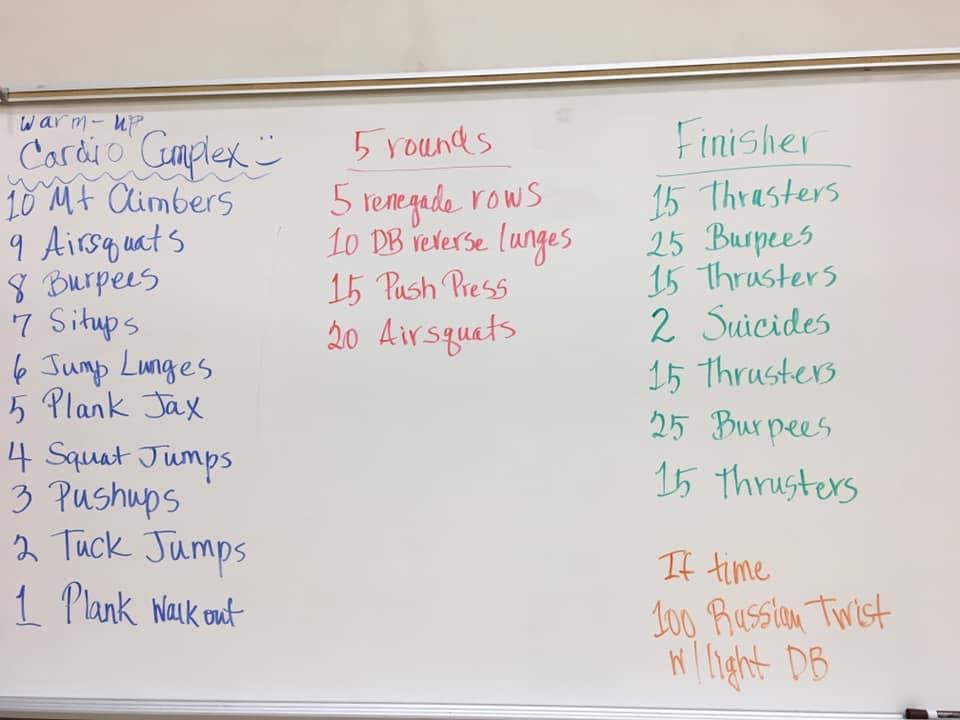 warm-up
Cardio Complex :)
10 Mt Climbers
9 Airsquats
8 Burpees
7 Situps
6 Jump Lunges
5 Plank Jax
4 Squat Jumps
3 Pushups
2 Tuck Jumps
1 Plank Walk out
5 rounds
5 renegade rows
10 DB reverse lunges
15 Push Press
20 Airsquats
Finisher
15 Thrusters
25 Burpees
15 Thrusters
2 Suicides
15 Thrusters
25 Burpees
15 Thrusters
If time
100 Russian Twist
w/light DB